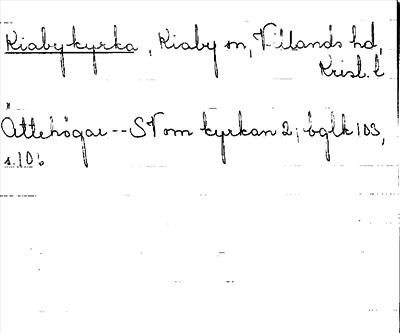 Kiaby kyrka, Kiaby sn, Villands hd,
Krist. l
Ättehögar -- SV om kyrkan 2; bglk 103,
s. 106